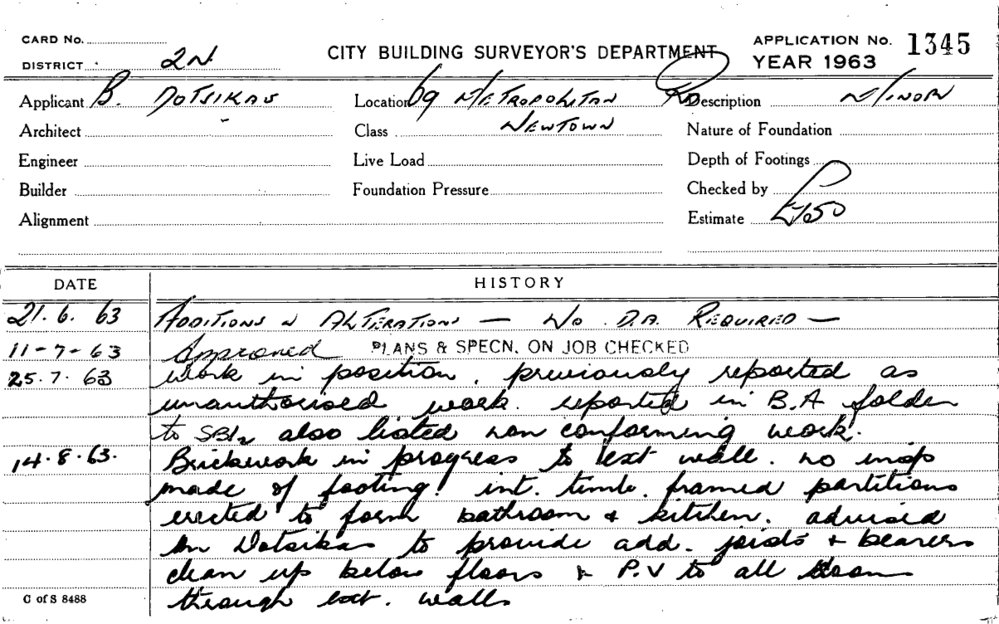 CARD No.
DISTRICT 2N.
CITY BUILDING SURVEYOR'S DEPARTMENT
APPLICATION No. 1345
YEAR 1963
Applicant B. DOTSIKAS
Location 69 METROPOLITAN RD
Description MINOR
Architect
Class NEWTOWN
Nature of Foundation
Engineer
Live Load
Depth of Footings
Builder
Foundation Pressure
Checked by
Alignment
Estimate £150
DATE
HISTORY
21.6.63 ADDITIONS & ALTERATIONS — No D.A. REQUIRED —
11-7-63 Approved PLANS & SPECN. ON JOB CHECKED
25.7.63 work in position, previously reported as
unauthorised work. reported in B.A folder
to also listed non conforming work.
14.8.63. Brickwork in progress to ext wall. no insp
made of footing! int. timb. framed partitions
erected to form bathroom & kitchen. advised
Mr Dotsikas to provide add. joists & bearers
clean up below floors & P.V to all
through ext. walls
C of S 8488